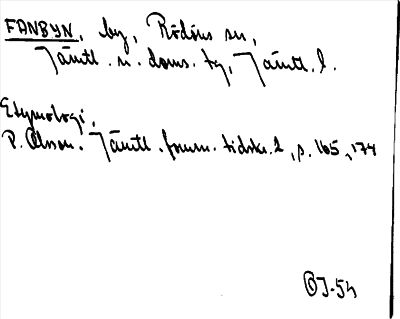 FANBYN, by, Rödöns sn,
Jämtl. n. doms. fg, Jämtl. l.
Etymologi.
P. Olsson. Jämtl. fornm. tidskr. 2, s. 165, 174
ÖJ-54